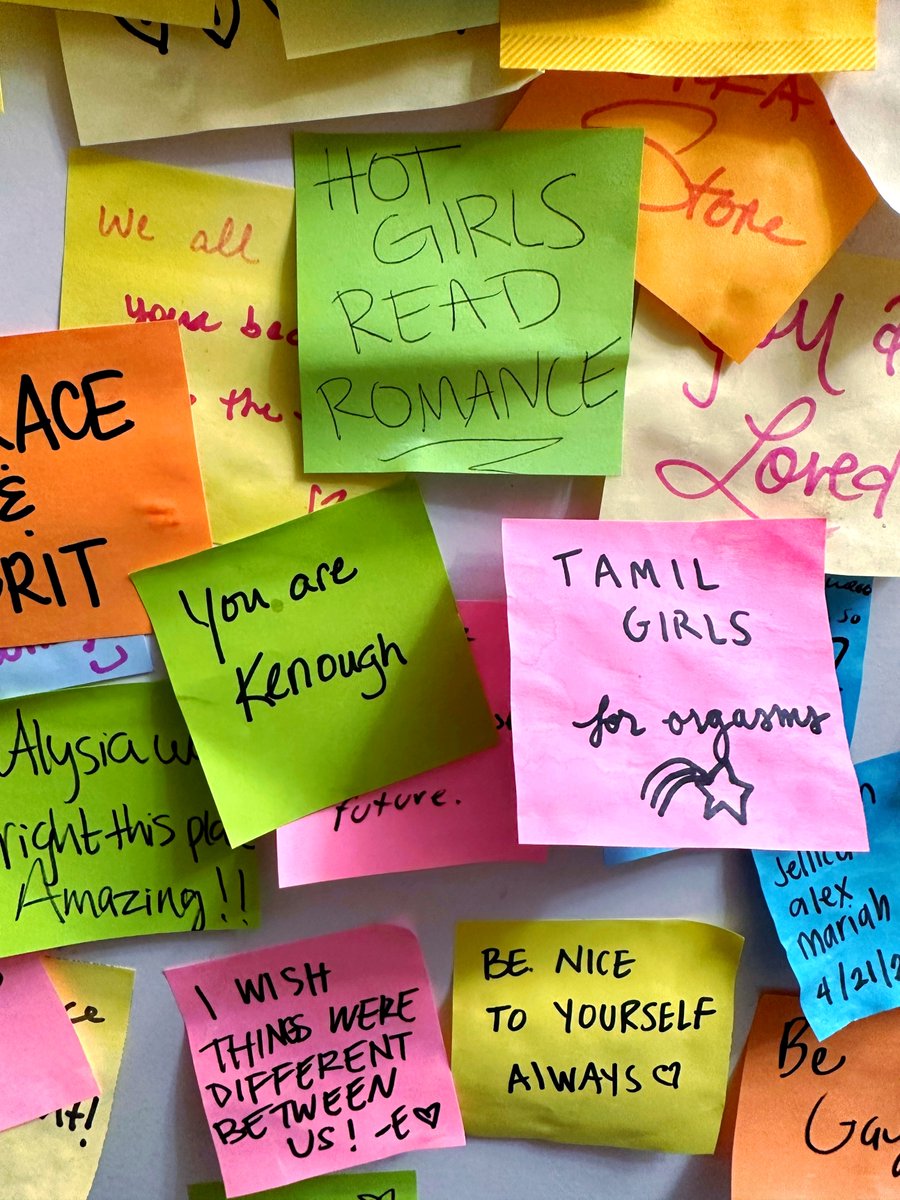 Store
HOT
GIRLS
READ
ROMANCE
We all
your
the
you
Loved
RACE
&
RIT
You are
Kenough
TAMIL
GIRLS
for orgasms
so
future.
Alysia
right this
Amazing!!
alex
mariah
4/21/2
I WISH
THINGS WERE
DIFFERENT
BETWEEN
US! -E♡
BE NICE
TO YOURSELF
AlWAYS ♡
Be
Gay